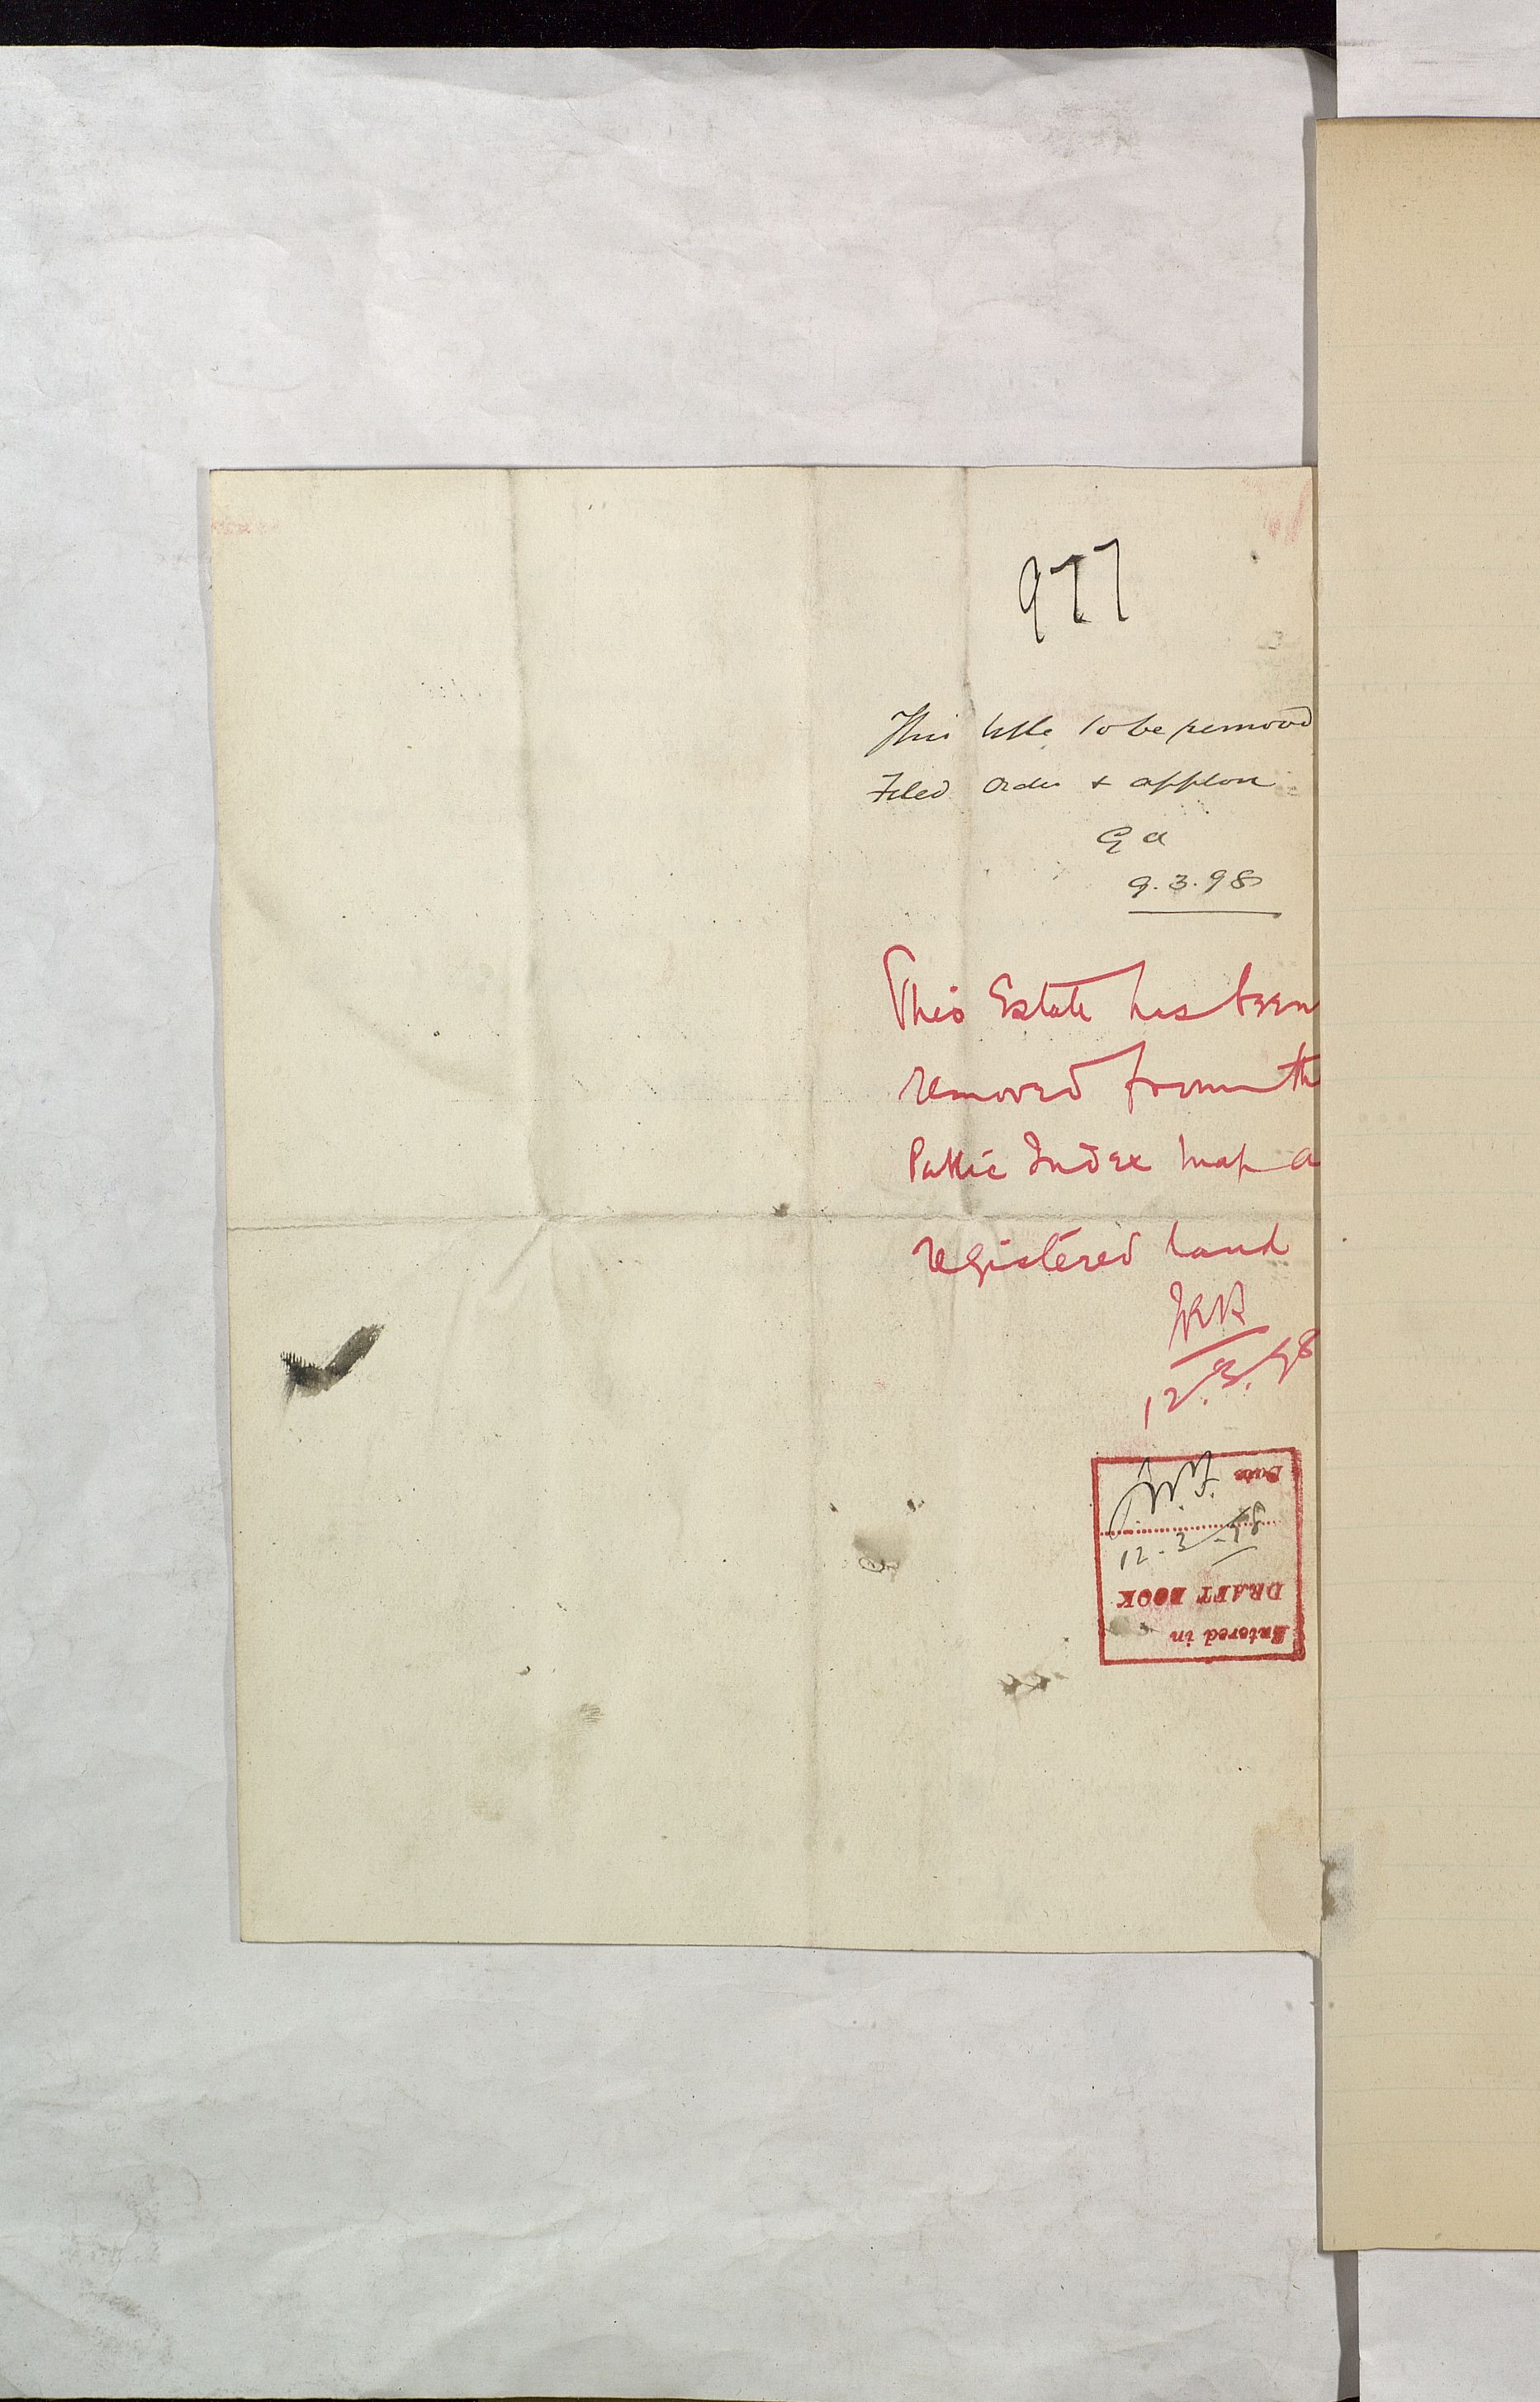 977
This title to be removed
Filed Order & applon
G a
9.3.98
This Estate has been
removed from th
Public Index Map a
registered land
12.3.98
Entered in
DRAFT BOOK
12-3-98
Date